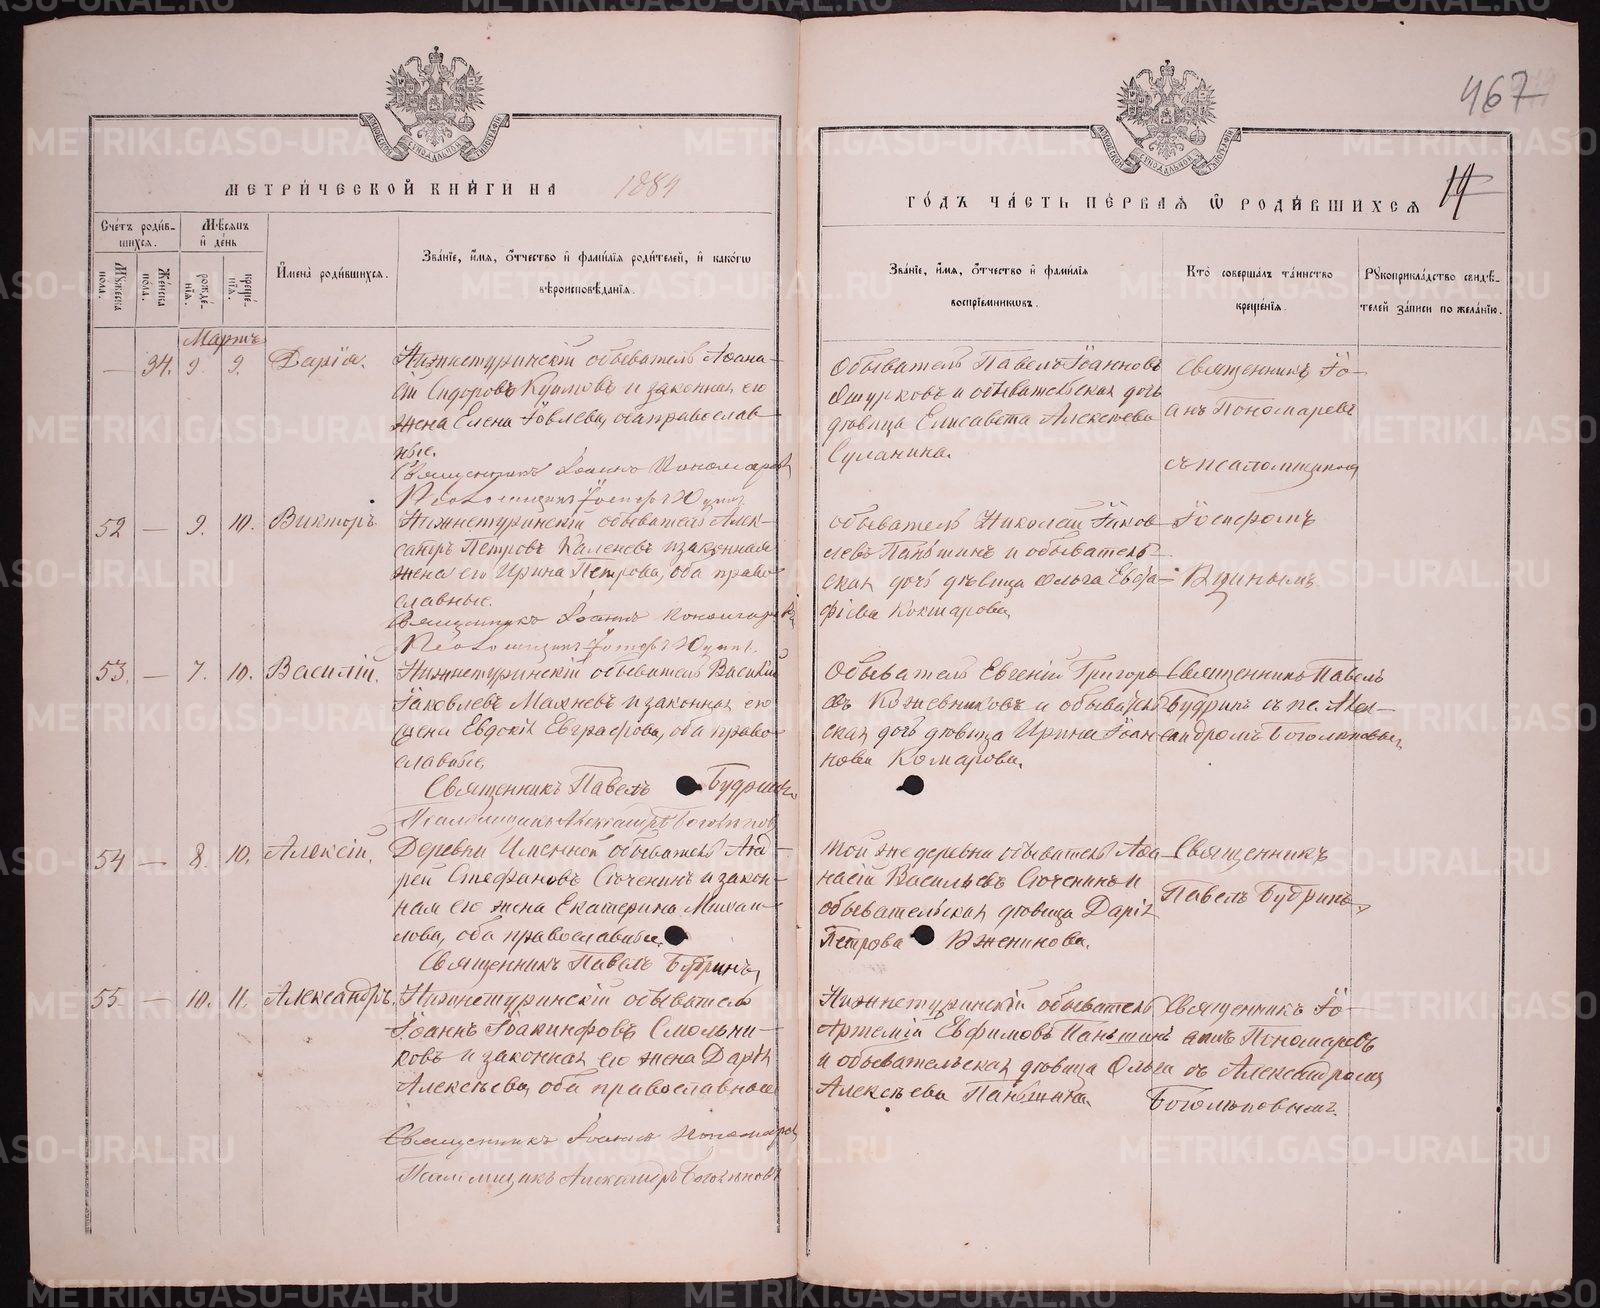 467
МЕТРИ́ЧЕСКОЙ КНИ́ГИ НА 1884
ГО́ДЪ ЧА́СТЬ ПЕ́РВАѦ Ѽ РОДИ́ВШИХСѦ
Сче́тъ роди́в-
шихсѧ.
Мѣ́сѧцъ
и҆ де́нь
Мꙋ́жеска пола.
Же́нска пола.
рожде́-нїѧ.
креще́-нїѧ.
И҆мена̀ роди́вшихсѧ.
Зва́нїе, и҆́мѧ, ѻ҆́тчество и҆ фами́лїѧ роди́телей, и҆ како́гѡ
вѣроисповѣ́данїѧ.
Зва́нїе, и҆́мѧ, ѻ҆́тчество и҆ фами́лїѧ
воспрїе́мниковъ.
Кто̀ соверша́лъ та́инство
креще́нїѧ.
Рꙋкоприкла́дство свидѣ́-
телей за́писи по жела́нїю.
Мартъ
— 34. 9. 9. Дарія.
Нижнетуринскій обыватель Афана-
сій Сидоровъ и законная его
жена Елена Іовлева, оба православ-
ные.
Священникъ Іоаннъ Пономаревъ
Обыватель Павелъ Іоанновъ
Ошурковъ и обывательская дочь
дѣвица Елисавета Алексѣева
Суланина.
Священникъ Іо-
анъ Пономаревъ
съ псаломщикомъ
52 — 9. 10. Викторъ.
Нижнетуринскій обыватель Алек-
сандръ Петровъ и законная
жена его Ирина Петрова, оба право-
славные.
Священникъ Іоаннъ Пономаревъ
обыватель Николай Іаков-
левъ Паньшинъ и обыватель-
ская дочь дѣвица Ольга Евѳи-
міева
Іосифомъ
53. — 7. 10. Василій.
Нижнетуринскій обыватель Василій
Іаковлевъ Махневъ и законная его
жена Евдокія Евграфова, оба право-
славные.
Священникъ Павелъ Будринъ
Псаломщикъ Александръ Боголѣповъ
Обыватель Евгеній Григорь-
евъ Кожевниковъ и обыватель-
ская дочь дѣвица Ирина Іоан-
нова Комарова.
Священникъ Павелъ
Будринъ съ пс. Алек-
сандромъ Боголѣповымъ
54 — 8. 10. Алексій.
Деревни Именной обыватель Анд-
рей Стефановъ и закон-
ная его жена Екатерина Михаи-
лова, оба православные.
Священникъ Павелъ Будринъ
той же деревни обыватель Аѳа-
насій Васильевъ и
обывательская дѣвица Дарія
Петрова
Священникъ
Павелъ Будринъ
55 — 10. 11. Александръ.
Нижнетуринскій обыватель
Іоаннъ Іоакинфовъ Смольни-
ковъ и законная его жена Дарія
Алексѣева, оба православные
Священникъ Іоаннъ Пономаревъ
Псаломщикъ Александръ Боголѣповъ
Нижнетуринскій обыватель
Артемій Евфимовъ Паньшинъ
и обывательская дѣвица Ольга
Алексѣева Паньшина.
Священникъ Іо-
аннъ Пономаревъ
съ Александромъ
Боголѣповымъ.
METRIKI.GASO-URAL.RU